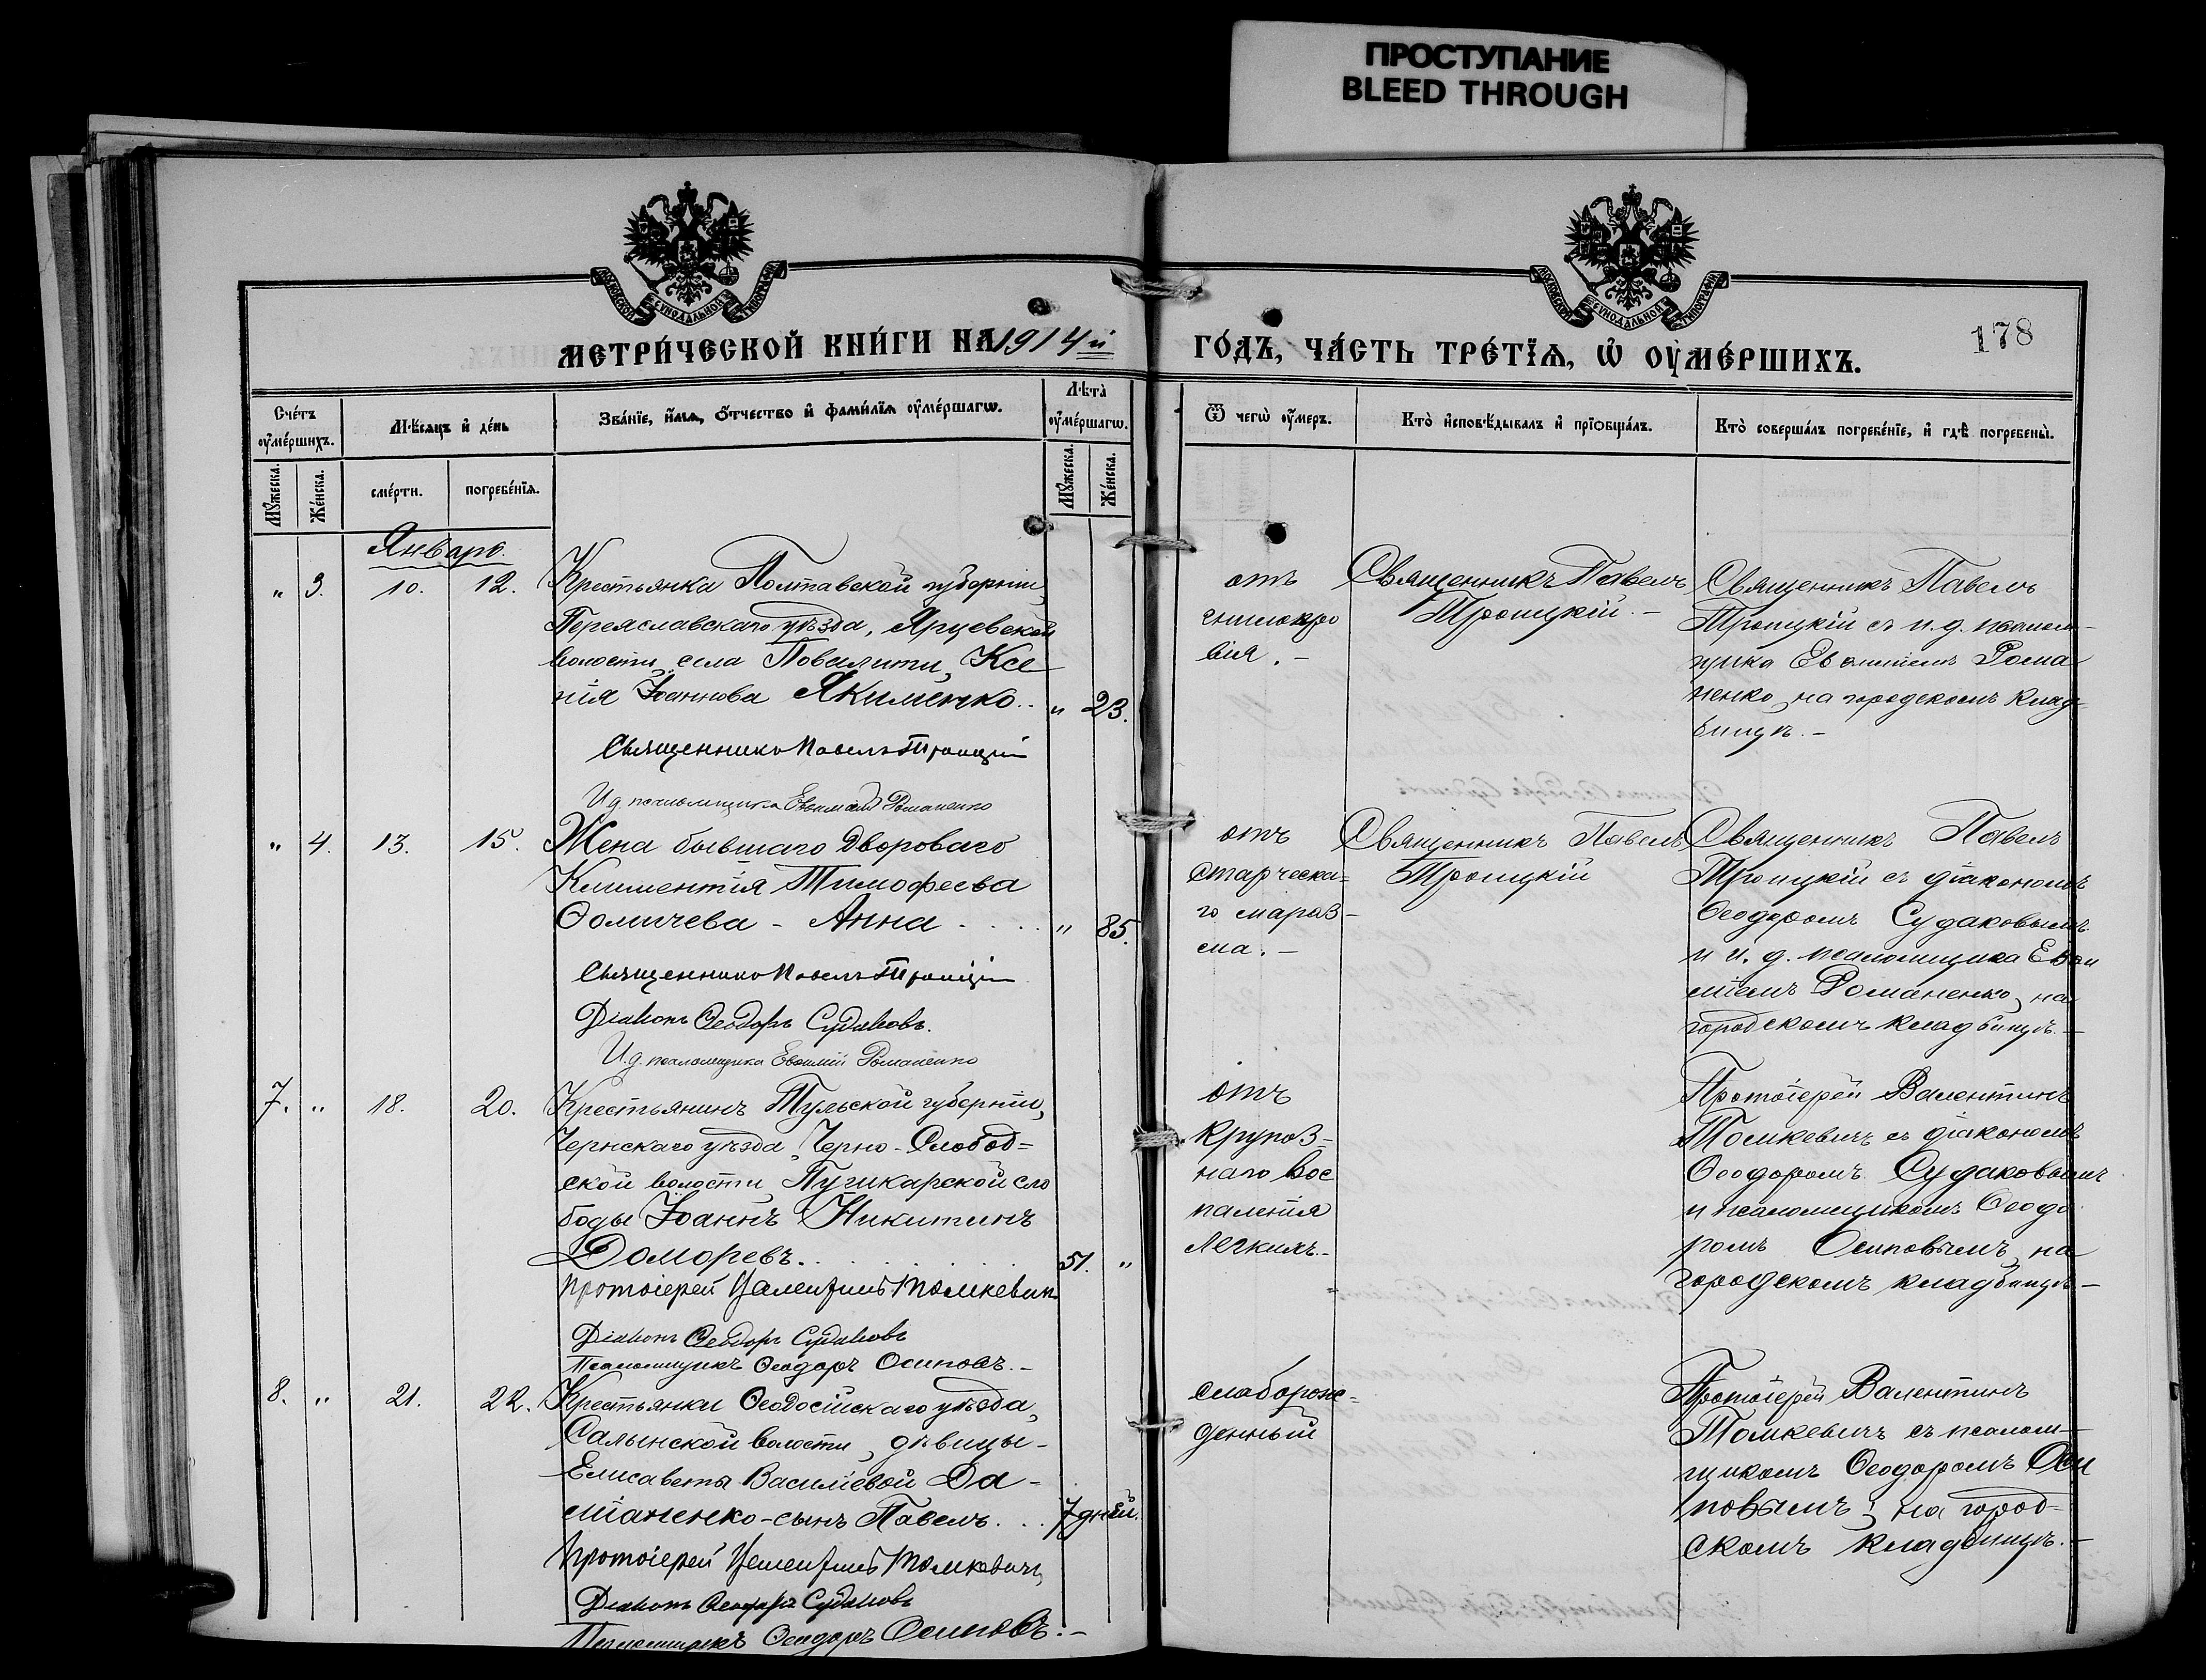 ПРОСТУПАНИЕ
BLEED THROUGH
МОСКОВСКОЙ СѴНОДАЛЬНОЙ ТИПОГРАФІИ
МОСКОВСКОЙ СѴНОДАЛЬНОЙ ТИПОГРАФІИ
МЕТРИ́ЧЕСКОЙ КНИ́ГИ НА 1914й
ГО́ДЪ, ЧА́СТЬ ТРЕ́ТЇѦ, Ѡ ОУМЕ́РШИХЪ.
178
Сче́тъ оумершихъ.
Мѣсѧцъ и де́нь
Зва́нїе, и́мѧ, о́тчество и фами́лїѧ оуме́ршагѡ.
Лѣта̀ оуме́ршагѡ.
Ѿ чегѡ̀ оу́меръ.
Кто̀ и҆сповѣ́дывалъ и҆ прїобща́лъ.
Кто̀ соверша́лъ погребе́нїе, и҆ гдѣ̀ погребены̀.
Мꙋжеска.
Же́нска.
сме́рти.
погребе́нїѧ.
Мꙋжеска.
Же́нска.
Январь.
" 3. 10. 12.
Крестьянка Полтавской губерніи,
Переяславскаго уѣзда, Ярцевской
волости, села Повалити, Ксе
нія Іоаннова Якименко.. " 23.
Священникъ Павелъ Троицкій
И.д. псаломщика Евѳимій Романенко
отъ
гнилокро
вія. –
Священникъ Павелъ
Троицкій. –
Священникъ Павелъ
Троицкій съ и.д. псалом-
щика Евѳиміемъ Рома
ненко, на городскомъ клад-
бищѣ. –
" 4. 13. 15.
Жена бывшаго дворового
Климентія Тимофеева
Ѳомичева - Анна . . . . " 85.
Священникъ Павелъ Троицкій
Діаконъ Ѳеодоръ Судаковъ.
И.д. псаломщика Евѳимій Романенко
отъ
старческа=
го мараз-
ма. –
Священникъ Павелъ
Троицкій
Священникъ Павелъ
Троицкій съ діакономъ
Ѳеодоромъ Судаковымъ
и и. д. псаломщика Евѳи
міемъ Романенко, на
городскомъ кладбищѣ. –
7. " 18. 20.
Крестьянинъ Тульской губерніи,
Чернскаго уѣзда, Черно-Слобод=
ской волости, Пушкарской сло
боды Іоаннъ Никитинъ
Доморевъ. . . . . . . . 51. "
Протоіерей Валентинъ Томкевичъ
Діаконъ Ѳеодоръ Судаковъ
Псаломщикъ Ѳеодоръ Осиповъ. –
отъ
крупоз=
наго вос
паленія
легкихъ. –
Протоіерей Валентинъ
Томкевичъ съ діакономъ
Ѳеодоромъ Судаковымъ
и псаломщикомъ Ѳеодо
ромъ Осиповымъ, на
городскомъ кладбищѣ –
8. " 21. 22.
Крестьянки Ѳеодосійскаго уѣзда,
Салынской волости, дѣвицы -
Елисаветы Василіевой Да-
міаненко - сынъ Павелъ. . . 7 дней.
Протоіерей Валентинъ Томкевичъ
Діаконъ Ѳеодоръ Судаковъ
Псаломщикъ Ѳеодоръ Осиповъ. –
слаборож=
денный
Протоіерей Валентинъ
Томкевичъ съ псалом-
щикомъ Ѳеодоромъ Оси
повымъ, на город-
скомъ кладбищѣ. –